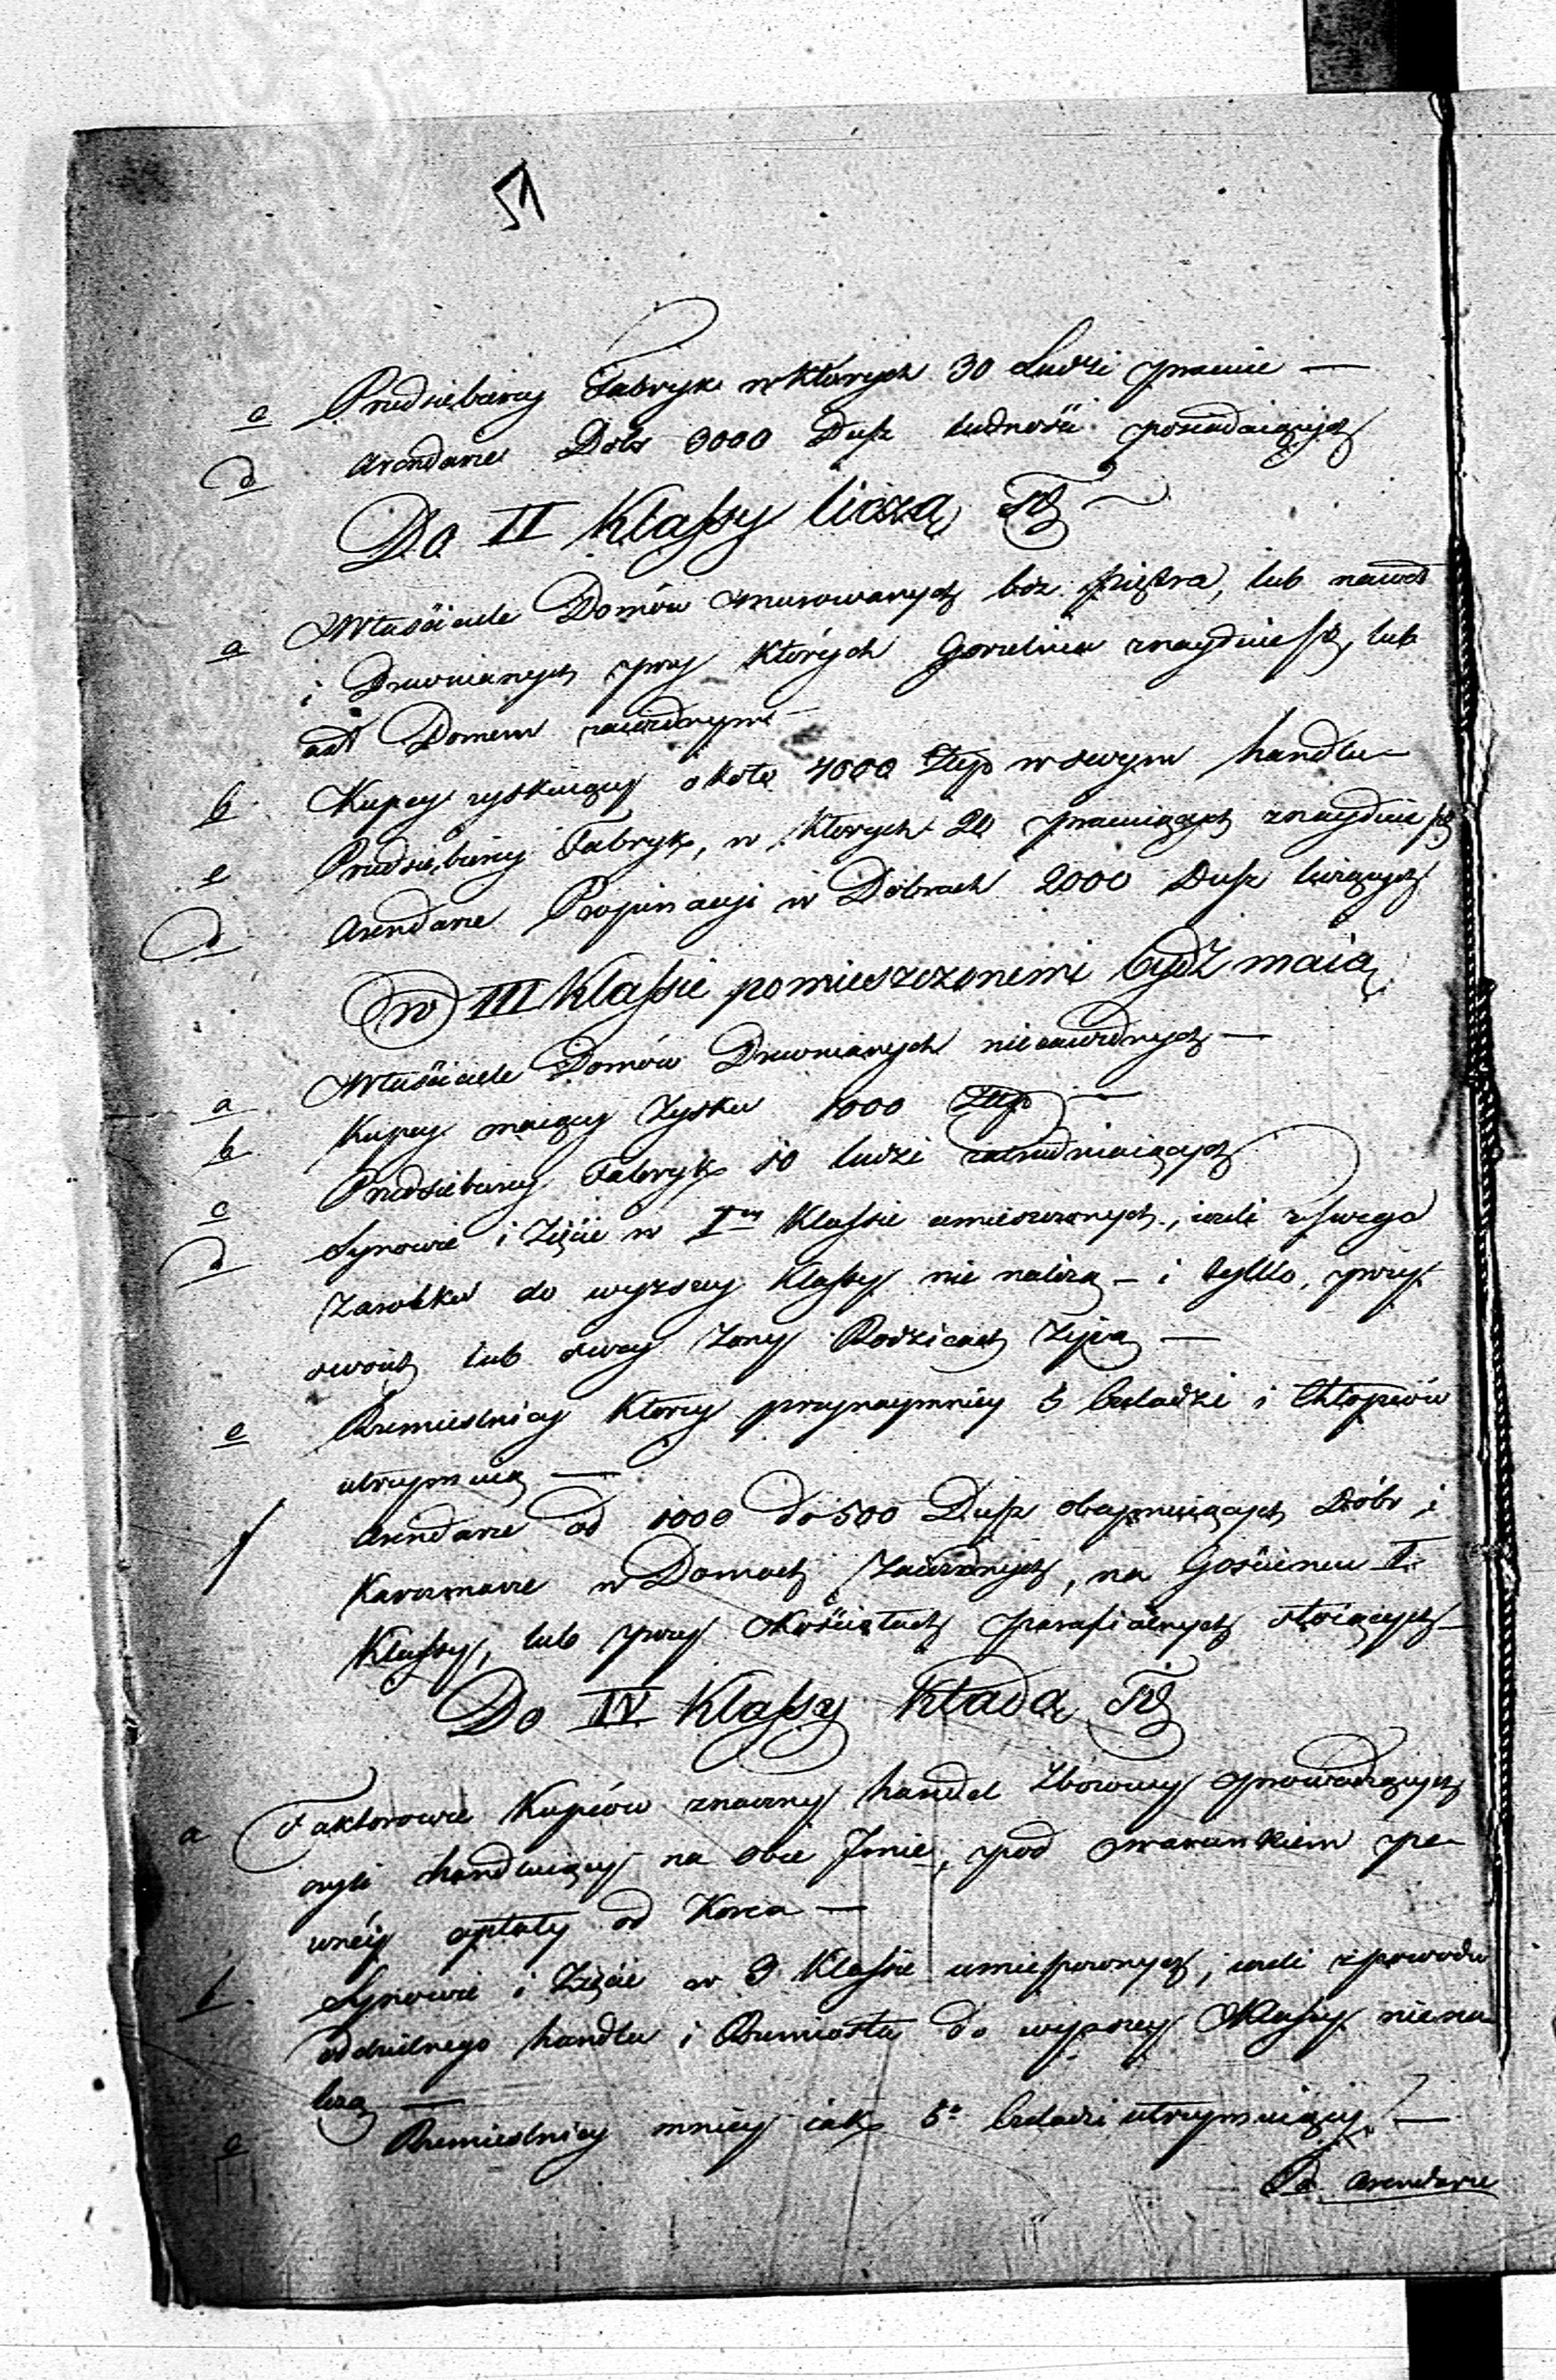 51
c Przedsiębiercy Fabryk w których 30 Ludzi pracuie —
d Arendarze Dóbr 3000 Dusz ludności posiadaiących
Do II Klassy liczą się
a Właściciele Domów murowanych bez piętra, lub nawet
i Drewnianych przy których Gorzelnia znayduie się, lub
Domem zaiezdnym —
b Kupcy zyskuiący około 4000 Złp w swym handlu —
c Przedsiębiercy Fabryk, w których 20 pracuiących znayduie się
d Arendarze Propinacyi w Dobrach 2000 Dusz liczących
w III Klassie pomieszczonemi bydź maią
a Właściciele Domów Drewnianych niezaiezdnych —
b Kupcy maiący Zysku 1000 Złp —
c Przedsiebiercy Fabryk 10 ludzi zatrudniaiących
d Synowie i Zięcie w I Klassie umieszczonych, ieżeli z swego
Zarobku do wyższey Klassy nie należą — i tylko, przy
swoich lub swey Żony Rodzicach żyią —
e Rzemieślnicy którzy przynaymniey 5 Czeladzi i Chłopców
utrzymuią —
f Arendarze od 1000 do 500 Dusz obeymuiących Dóbr i
Karczmarze w Domach Zaiezdnych, na Gościńcu I.
Klassy, lub przy Kościołach parafialnych stoiących —
Do IV Klassy kładą się
a Faktorowie Kupców znaczny handel Zbożowy prowadzących
czyli handluiący na obce Imie, pod warunkiem pe-
wnéy opłaty od Korca —
b Synowie i Zięcie w 3 Klassie umieszczonych, ieżeli z powodu
oddzielnego handlu i Rzemiosła do wyższey Klassy niena-
leżą —
c Rzemieślnicy mniey iak 5 Czeladzi utrzymuiący —
d. Arendarze